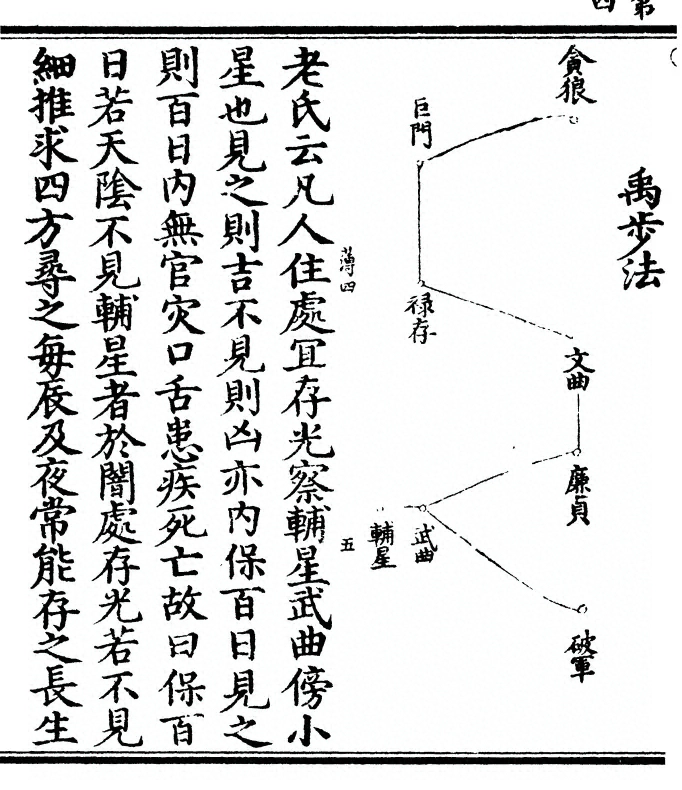 第
四
禹步法
貪狼
巨門
禄存
文曲
廉貞
武曲
輔星
破軍
薄四
五
老氏云凡人住處冝存光察輔星武曲傍小
星也見之則吉不見則凶亦内保百日見之
則百日内無官灾口舌患疾死亡故曰保百
日若天陰不見輔星者於闇處存光若不見
細推求四方尋之每辰及夜常能存之長生